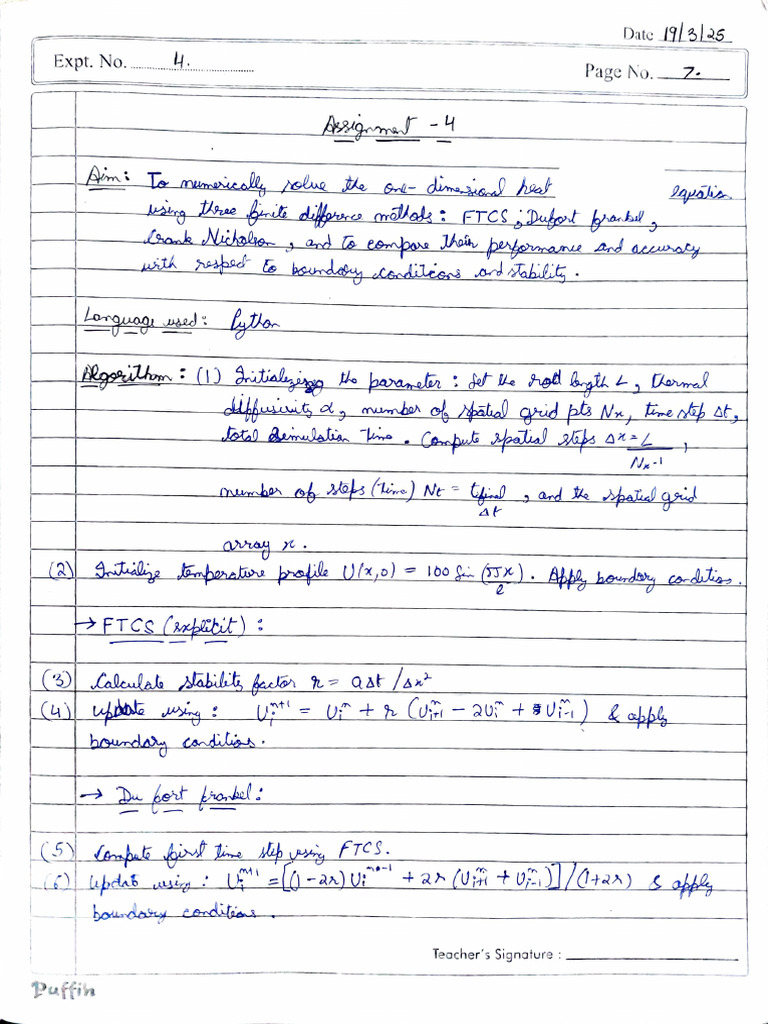 Date 19/3/25
Expt. No. 4.
Page No. 7.
Assignment - 4
Aim: To numerically solve the one-dimensional heat equation
using three finite difference methods: FTCS, Dufort frankel,
Crank Nicholson, and to compare their performance and accuracy
with respect to boundary conditions and stability.
Language used: Python
Algorithm: (1) Initializing the parameter: Set the rod length L, thermal
diffusivity α, number of spatial grid pts Nx, time step Δt,
total simulation time. Compute spatial steps Δx = L/(Nx-1),
number of steps (time) Nt = tfinal/Δt, and the spatial grid
array x.
(2) Initialize temperature profile U(x,0) = 100 Sin(πx/2). Apply boundary conditions.
→ FTCS (explicit):
(3) Calculate stability factor r = αΔt/Δx²
(4) Update using: Uᵢⁿ⁺¹ = Uᵢⁿ + r (Uᵢ₊₁ⁿ - 2Uᵢⁿ + Uᵢ₋₁ⁿ) & apply
boundary conditions.
→ Du fort frankel:
(5) Compute first time step using FTCS.
(6) Update using: Uᵢⁿ⁺¹ = [(1-2r)Uᵢⁿ⁻¹ + 2r (Uᵢ₊₁ⁿ + Uᵢ₋₁ⁿ)]/(1+2r) & apply
boundary conditions.
Teacher's Signature :
Puffin